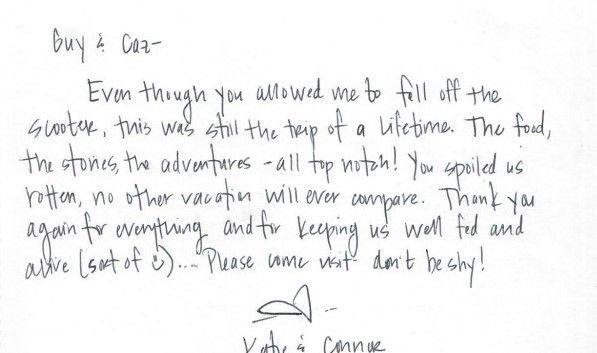 Guy & Caz-
Even though you allowed me to fall off the
scooter, this was still the trip of a lifetime. The food,
the stories, the adventures - all top notch! You spoiled us
rotten, no other vacation will ever compare. Thank you
again for everything and for keeping us well fed and
alive (sort of ☺)... Please come visit - don't be shy!
Katie & Connor